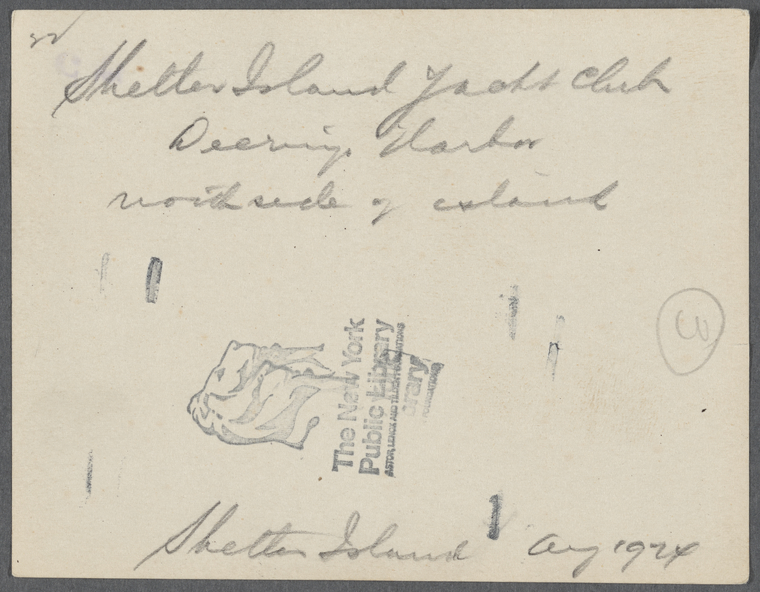 Shelter Island Yacht Club
Deering Harbor
north side of island
The New York
Public Library
ASTOR, LENOX AND TILDEN FOUNDATIONS
rary
FOUNDATIONS
3
Shelter Island Aug 1924